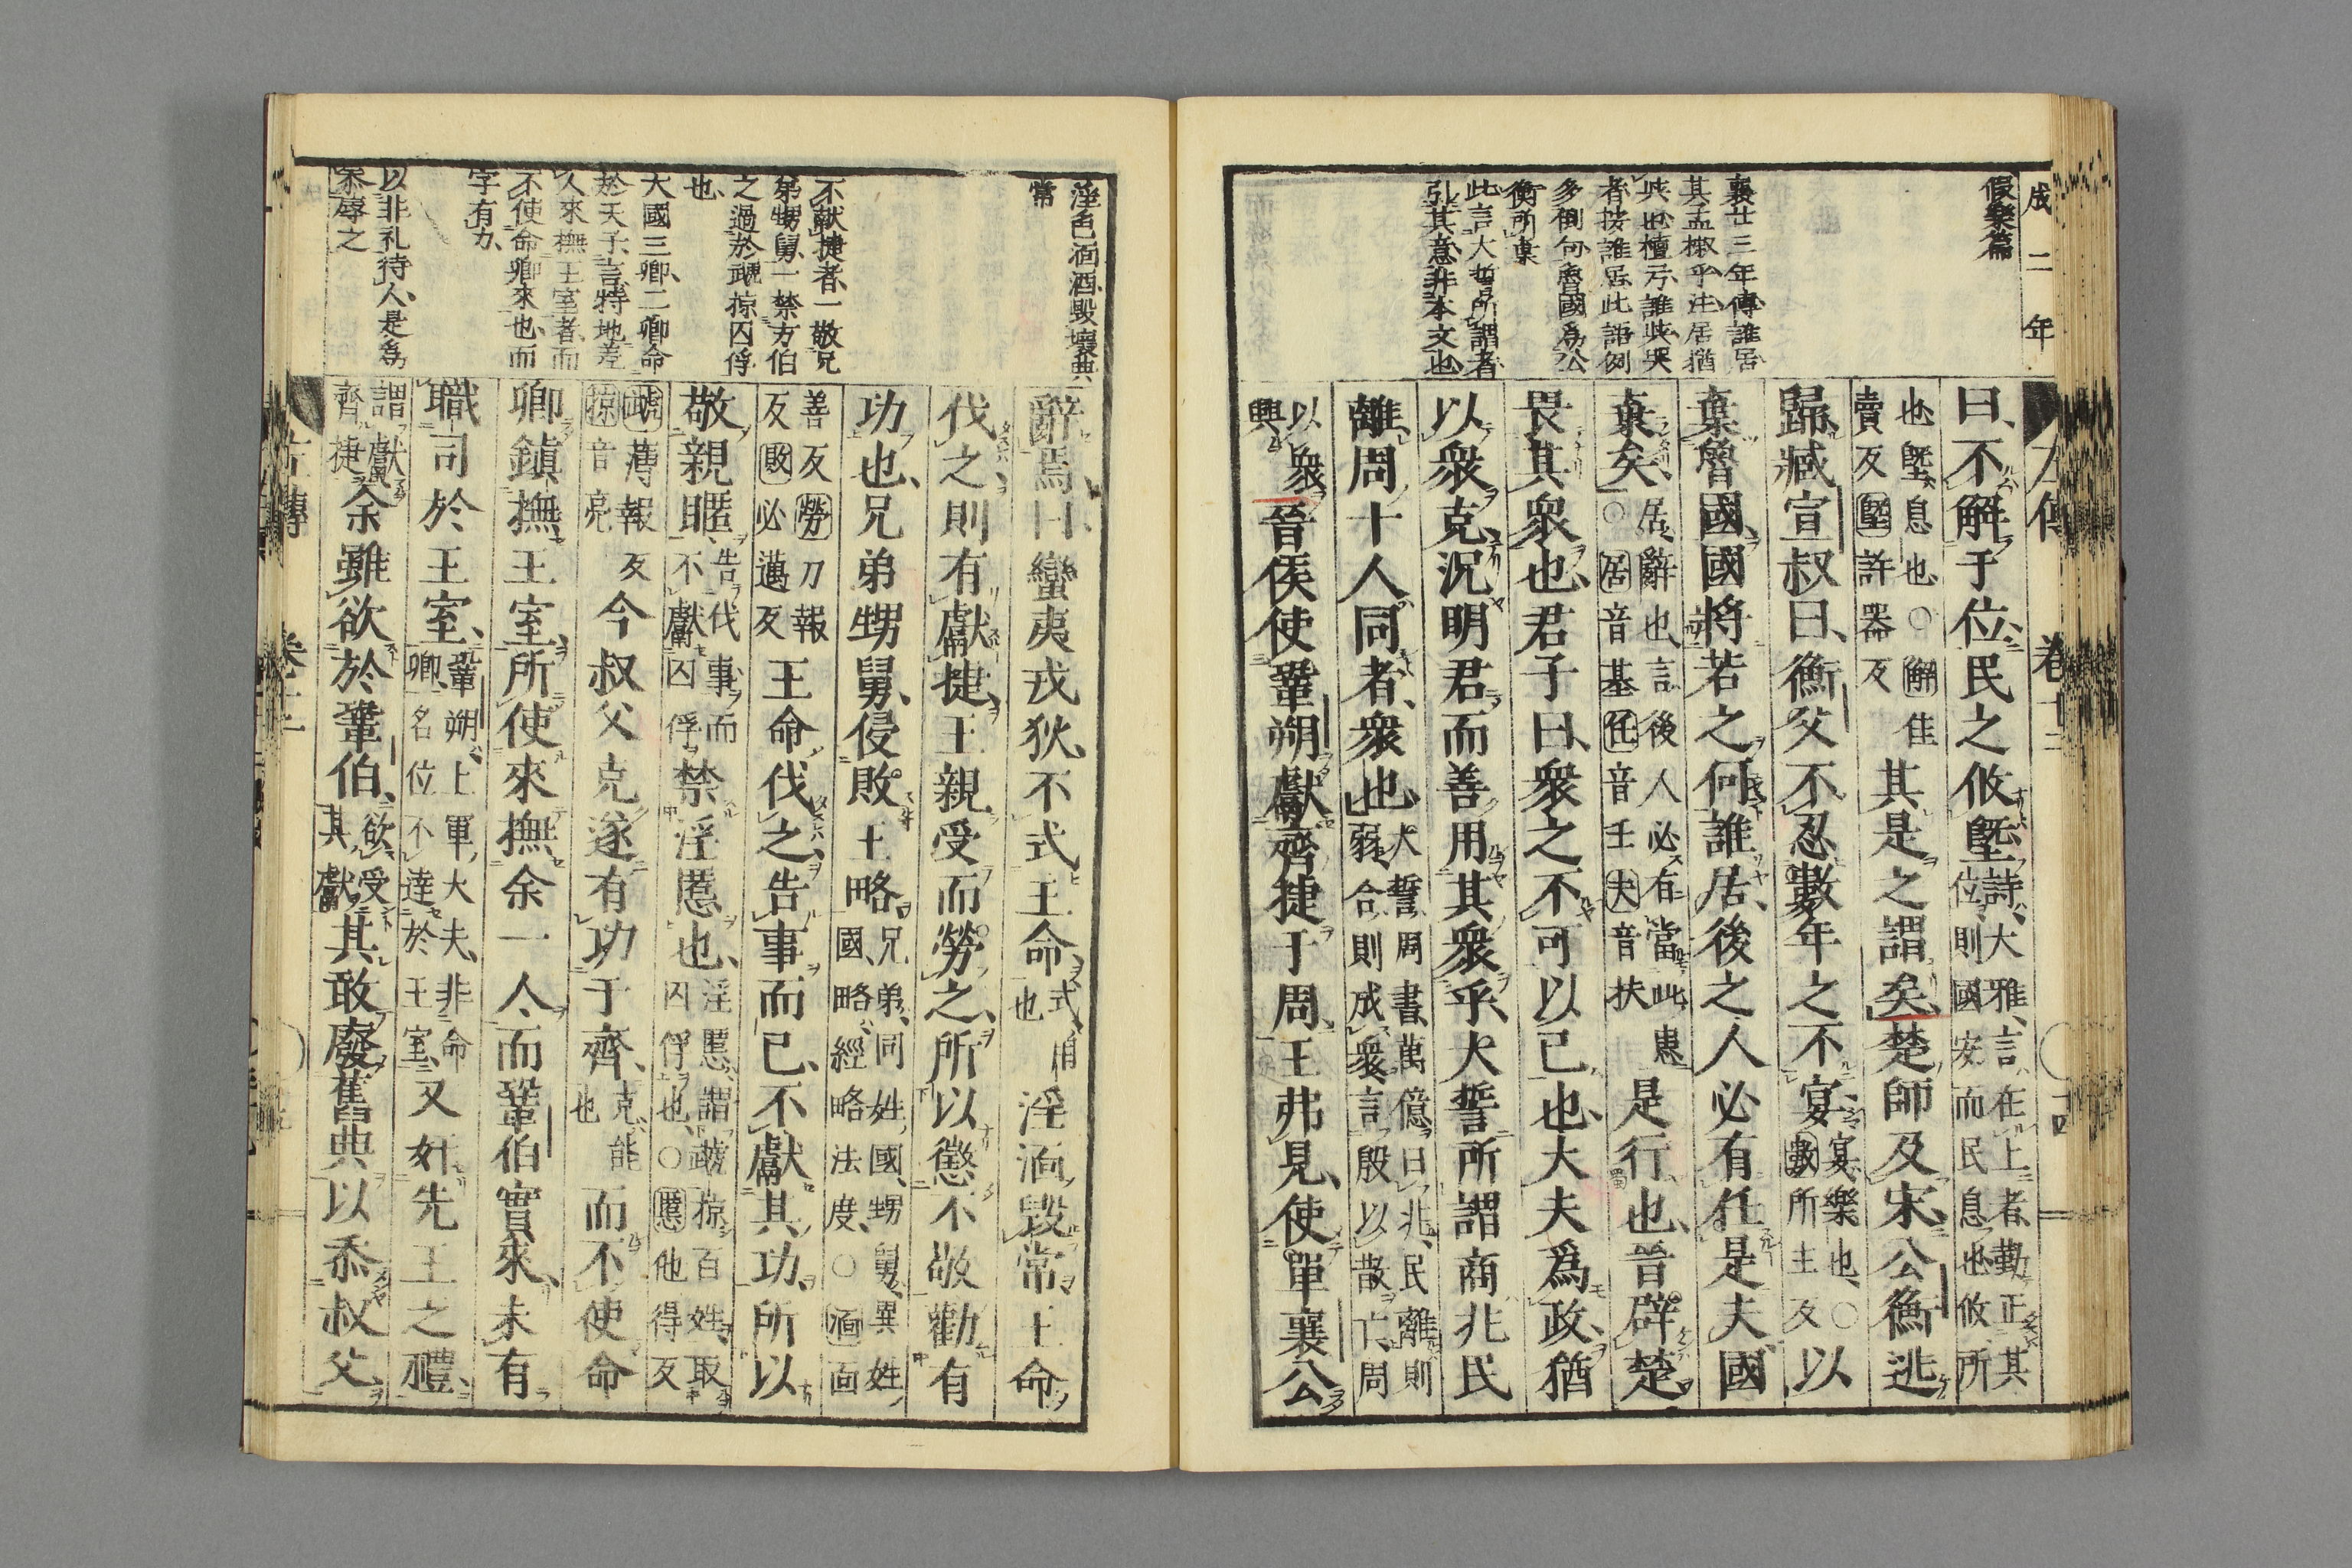 成二年
左傳 卷十二 十四
假樂篇
襄廿三年傳誰居
其孟椒乎注居猶
者按誰居此語例
多倒句魯國爲公
衡所棄
此言大誓所謂者
引其意非本文也
曰、不解于位、民之攸墍、詩、大雅、言、在上者、勤正其位、則國安而民息也、攸、所
也、墍、息也、○解佳賣反墍許器反其是之謂矣、楚師及宋、公衡逃
歸、臧宣叔曰、衡父不忍數年之不宴、宴、樂也、○數所主反以
棄魯國、國將若之何、誰居、後之人必有任是夫、國
棄矣、居、辭也、言後人必有當此患、○居音基任音壬夫音扶是行也、晉辟楚、
畏其衆也、君子曰、衆之不可以已也、大夫爲政、猶
以衆克、況明君而善用其衆乎、大誓所謂商兆民
離、周十人同者、衆也、大誓、周書、萬億曰兆、民離則弱、合則成衆、言殷以散亡、周
以衆興晉侯使鞏朔獻齊捷于周、王弗見、使單襄公
淫色湎酒毀壞典
常
不獻捷者、一敬兄
弟甥舅、一禁方伯
之過於虢掠囚俘
也、
大國三卿、二卿命
於天子、言特地差
人來撫王室者、而
不使命卿來也、而
字有力、
以非礼待人、是爲
忝辱之
辭焉、曰、蠻夷戎狄、不式王命、式、用也、淫湎毀常、王命
伐之、則有獻捷、王親受而勞之、所以懲不敬、勸有
功也、兄弟甥舅、侵敗王略、兄弟、同姓國、甥舅、異姓國、略、經略法度、○湎面
善反勞力報反敗必邁反王命伐之、告事而已、不獻其功、所以
敬親暱、告伐事而不獻囚俘禁淫慝也、淫慝、謂虢掠百姓、取囚俘也、○慝他得反
虢薄報反掠音亮今叔父克遂有功于齊、克、能也而不使命
卿鎮撫王室、所使來撫余一人、而鞏伯實來、未有
職司於王室、鞏朔、上軍大夫、非命卿、名位不達於王室、又奸先王之禮、
謂獻齊捷余雖欲於鞏伯、欲受其獻其敢廢舊典以忝叔父、
左傳 卷十二